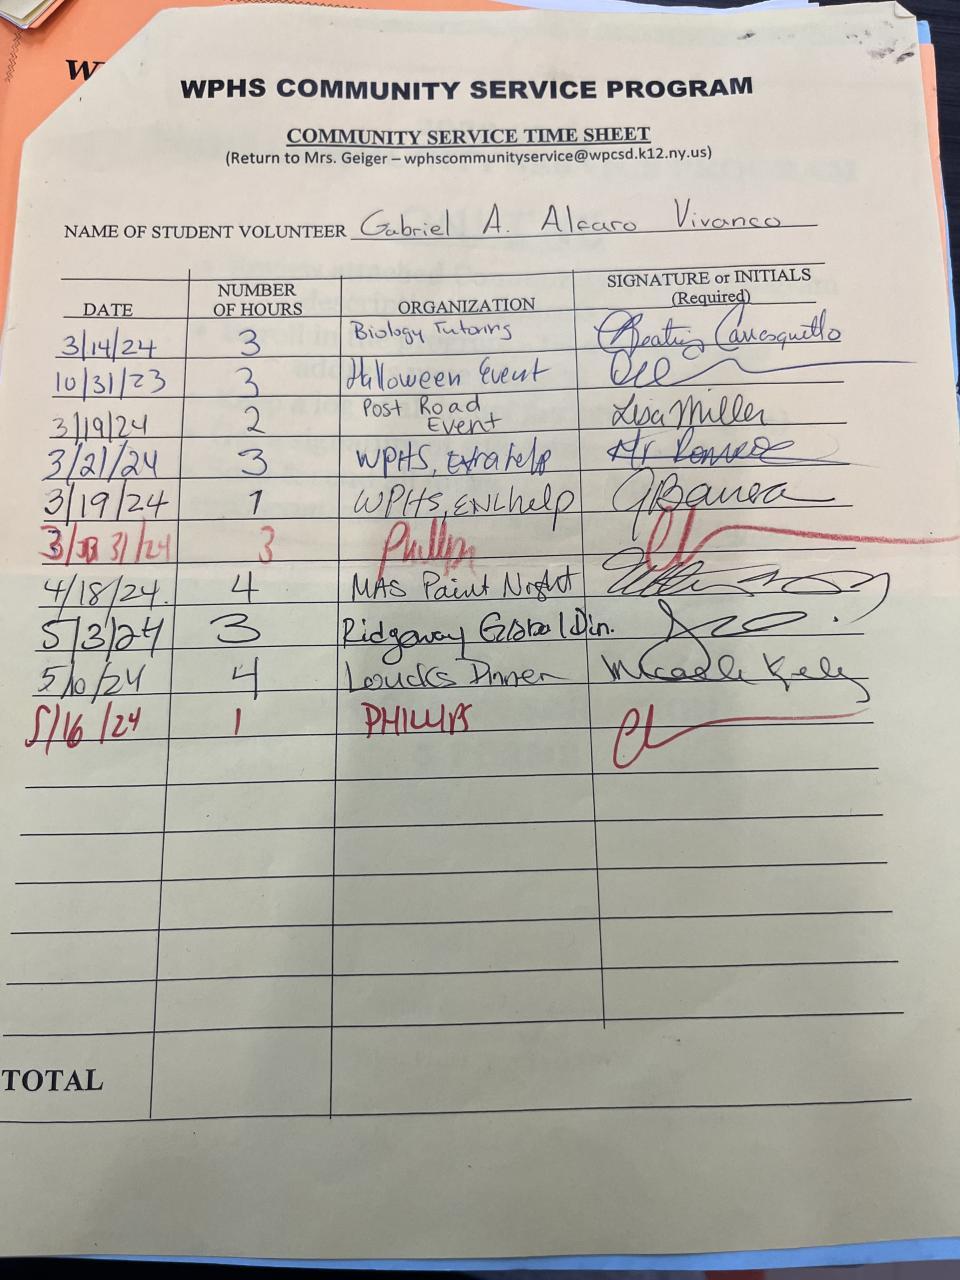 W
WPHS COMMUNITY SERVICE PROGRAM
COMMUNITY SERVICE TIME SHEET
(Return to Mrs. Geiger – wphscommunityservice@wpcsd.k12.ny.us)
NAME OF STUDENT VOLUNTEER Gabriel A. Alfaro Vivanco
DATE NUMBER OF HOURS ORGANIZATION SIGNATURE or INITIALS (Required)
3/14/24 3 Biology Tutoring Beatriz Carrasquillo
10/31/23 3 Halloween Event
3/19/24 2 Post Road Event Lisa Miller
3/21/24 3 WPHS, Extra help Mr
3/19/24 1 WPHS, ENL help
3/ 31/24 3 Phillips
4/18/24. 4 MAS Paint Night
5/3/24 3 Ridgeway Global Din.
5/10/24 4 Loucks Dinner
5/16/24 1 PHILLIPS
TOTAL